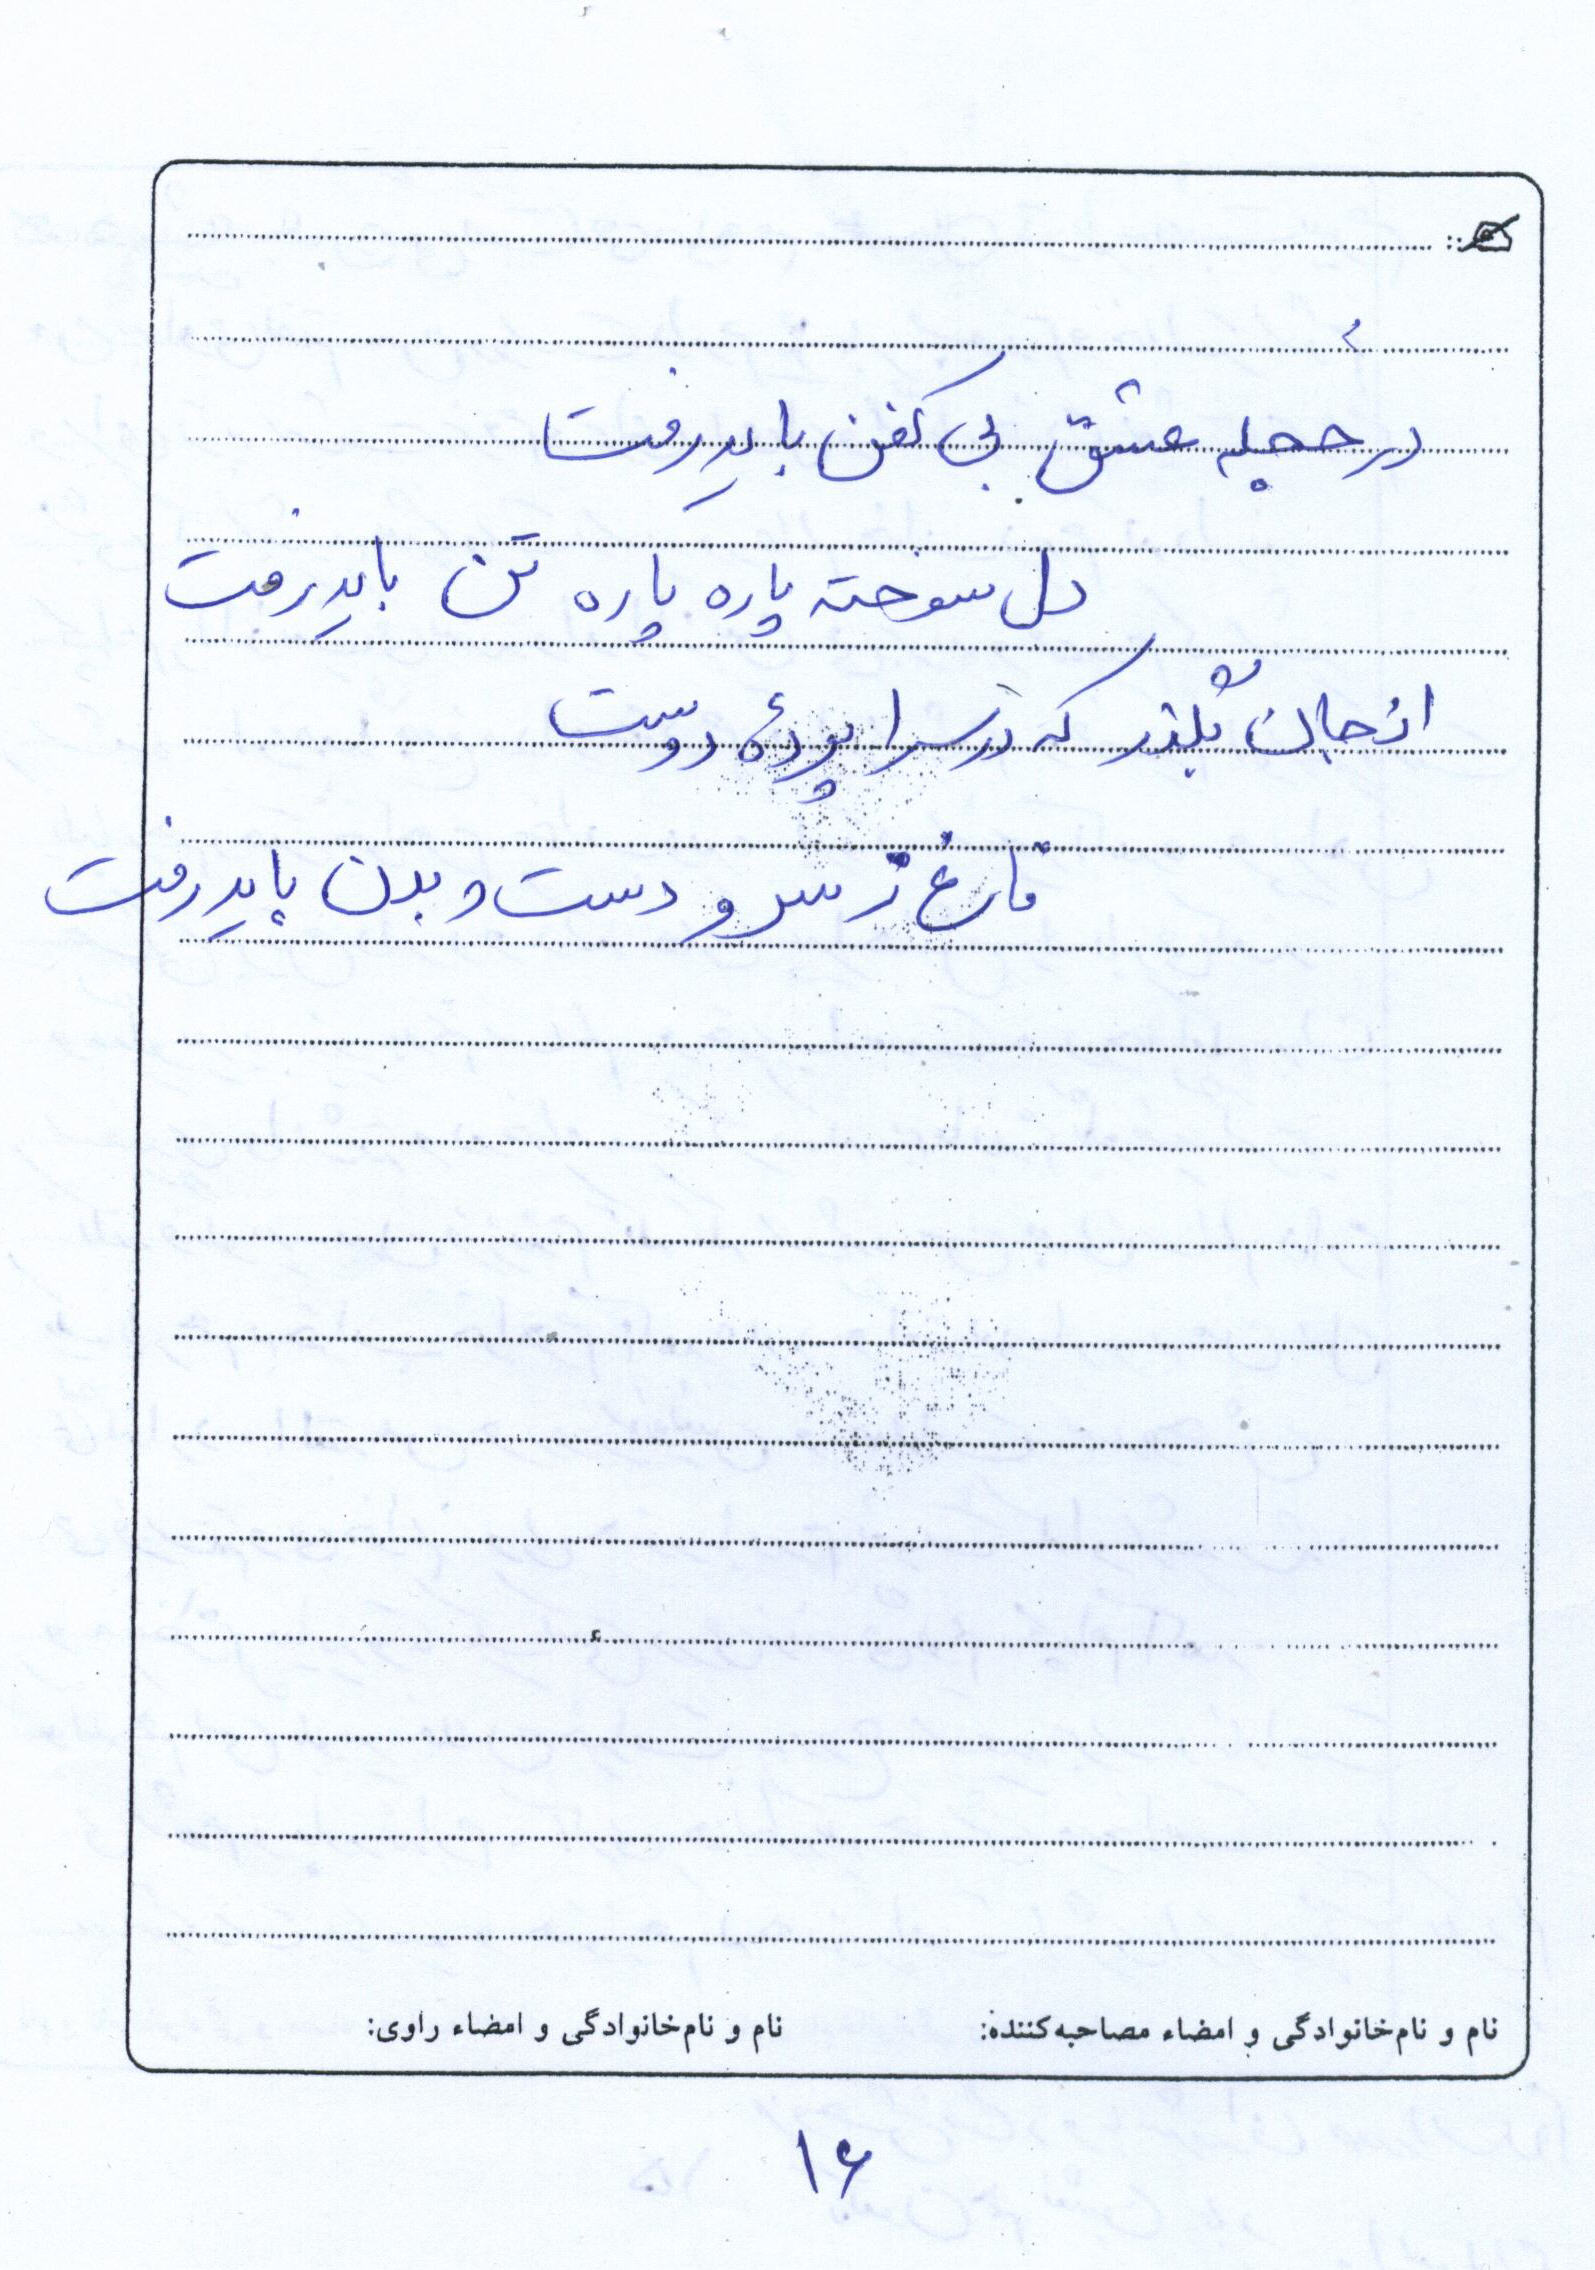 در حجله عشق بی کفن باید رفت
دل سوخته پاره پاره تن باید رفت
از جان بگذر که در سرا پردهٔ دوست
فارغ ز سر و دست و بدن باید رفت
نام و نام‌خانوادگی و امضاء مصاحبه‌کننده: نام و نام‌خانوادگی و امضاء راوی:
۱۶